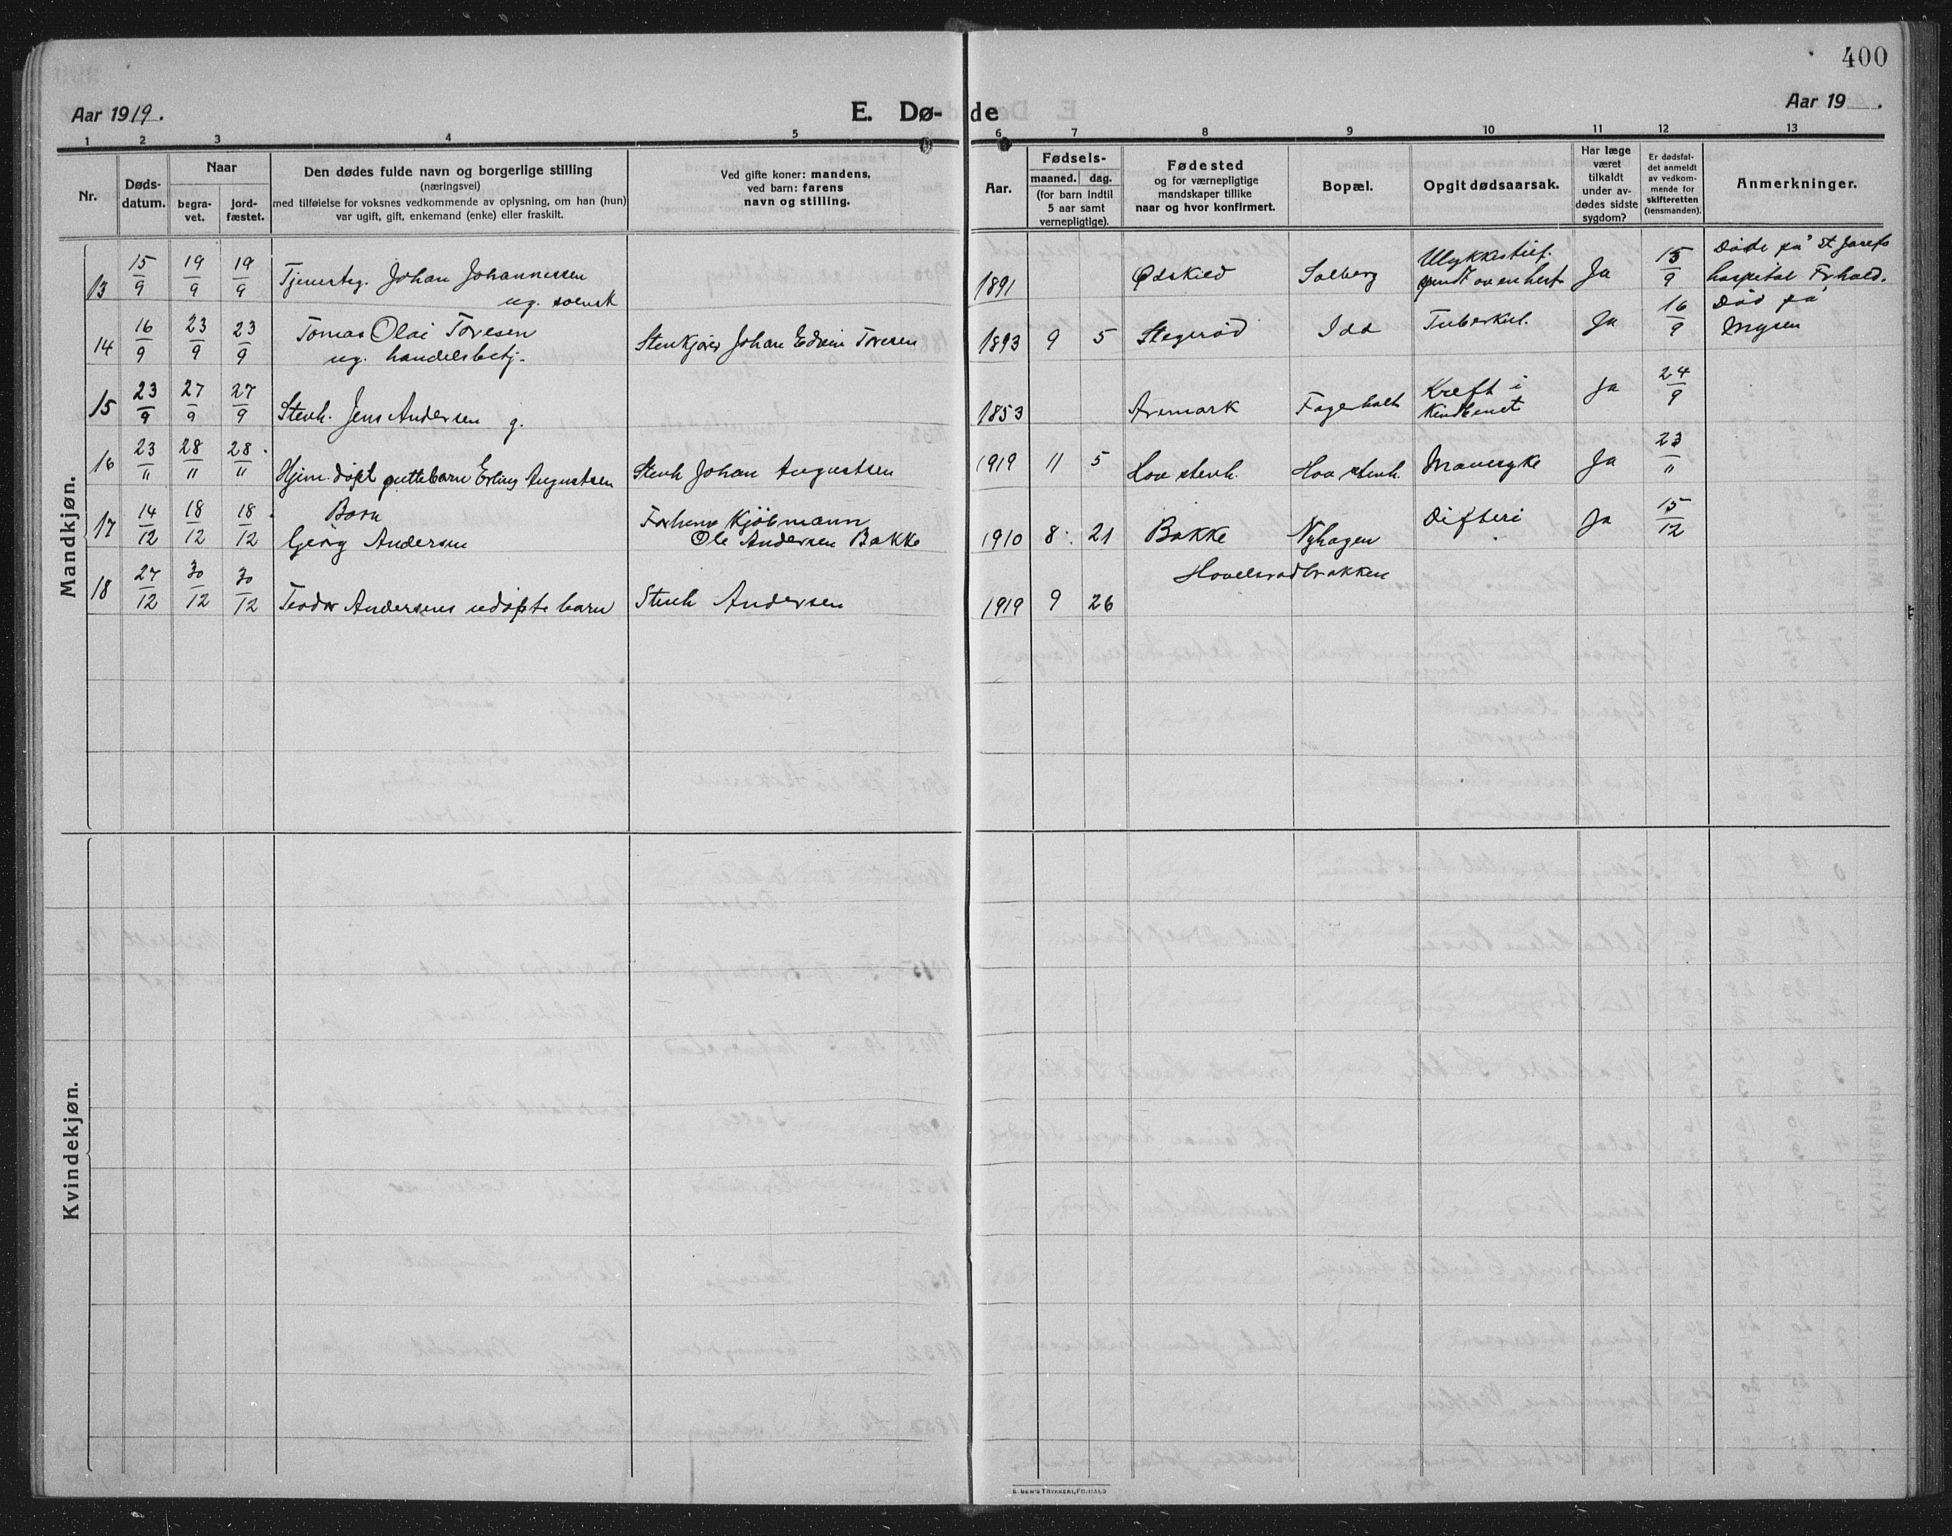 400
Aar 1919.
E. Dø-
de
Aar 19 .
1 2 3 4 5 6 7 8 9 10 11 12 13
Nr.
Døds-
datum.
Naar
begra-
vet.
jord-
fæstet.
Den dødes fulde navn og borgerlige stilling
(næringsvei)
med tilføielse for voksnes vedkommende av oplysning, om han (hun)
var ugift, gift, enkemand (enke) eller fraskilt.
Ved gifte koner: mandens,
ved barn: farens
navn og stilling.
Aar.
Fødsels-
maaned. dag.
(for barn indtil
5 aar samt
vernepligtige).
Fødested
og for værnepligtige
mandskaper tillike
naar og hvor konfirmert.
Bopæl.
Opgit dødsaarsak.
Har læge
været
tilkaldt
under av-
dødes sidste
sygdom?
Er dødsfal-
det anmeldt
av vedkom-
mende for
skifteretten
(lensmanden).
Anmerkninger.
Mandkjøn.
13 15/9 19/9 19/9 Tjenesteg. Johan Johannessen 1891 Ødskild Solberg Ulykkestilf. Ja 15/9 Døde på St. Josefs
ug. svensk av en hest hospital Frhald.
14 16/9 23/9 23/9 Tomas Olai Toresen Stenkjører Johan Edvin Toresen 1893 9 5 Stegerød Idd Tuberkul. Ja 16/9 Død på
ug. handelsbetj. Mysen
15 23/9 27/9 27/9 Stenh. Jens Andersen g. 1853 Aremark Fagerholt Kreft i Ja 24/9
Kindbenet
16 23/11 28/11 28/11 Hjem. døpt guttebarn Erling Augustsen Stenh Johan Augustsen 1919 11 5 Hov stenh. Hov stenh. Mavesyke Ja 23/11
17 14/12 18/12 18/12 Barn Forhenv Kjøbmann
Georg Andersen Ole Andersen Bakke 1910 8 21 Bakke Nyhagen Difteri Ja 15/12
18 27/12 30/12 30/12 Teodor Andersens udøpte barn Stenh Andersen 1919 9 26
Kvindekjøn.